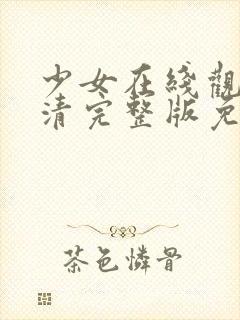 少女在綫觀
清完整版免
茶色憐骨